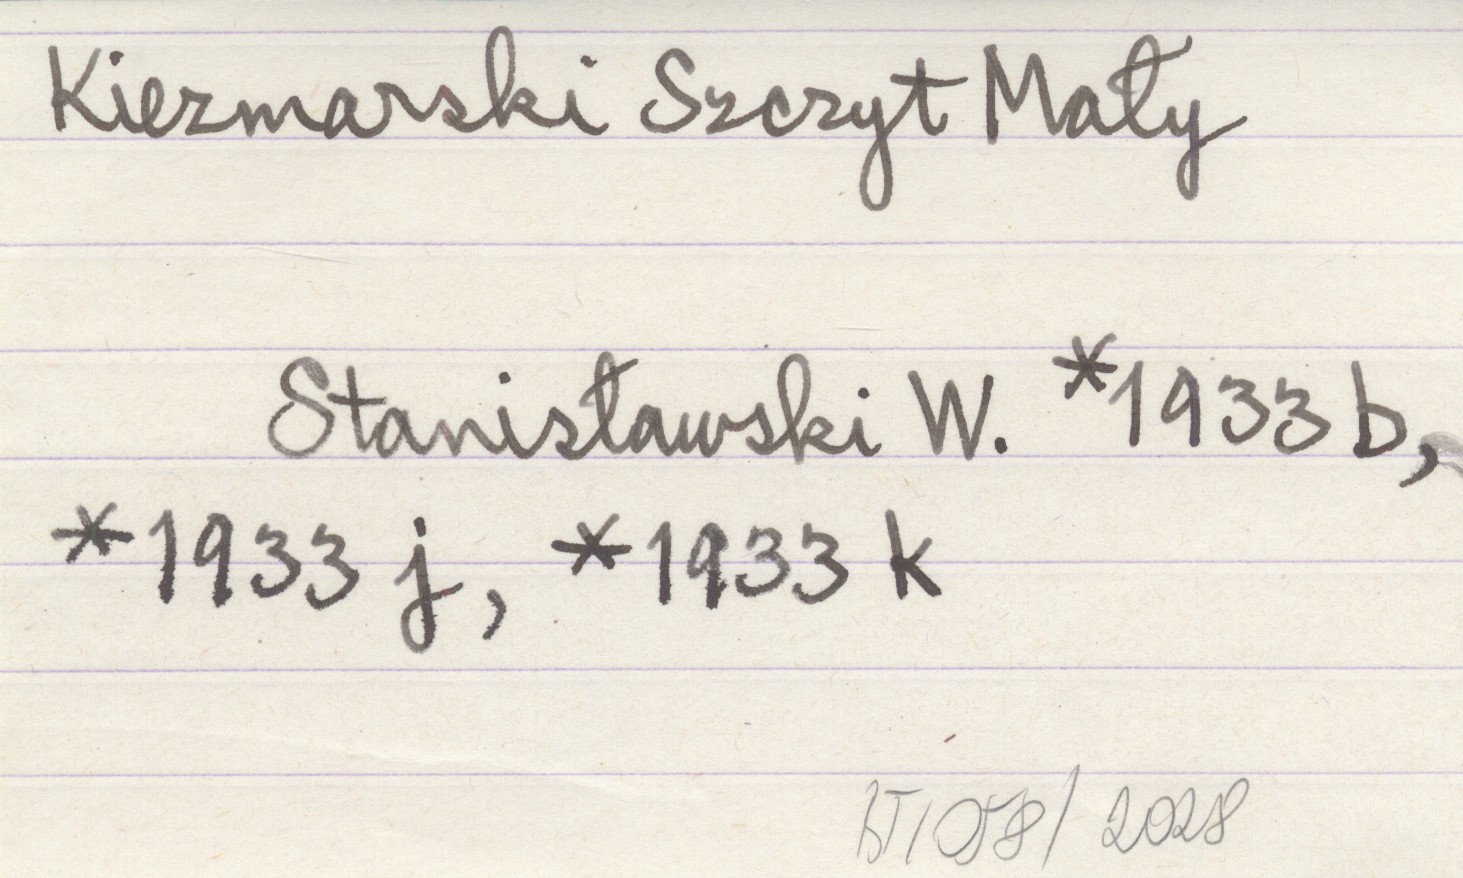 Kiezmarski Szczyt Mały
Stanisławski W. *1933 b,
*1933 j, *1933 k
BT/058/2028